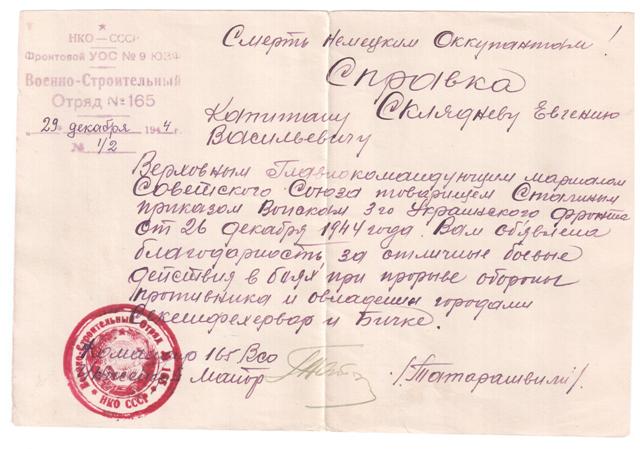 НКО — СССР
Фронтовой УОС № 9 ЮЗФ
Военно-Строительный
Отряд № 165
29 декабря 1944 г.
№ 1/2
Смерть Немецким Оккупантам!
Справка
Капитану Склядневу Евгению
Васильевичу
Верховным Главнокомандующим маршалом
Советского Союза товарищем Сталиным
приказом войскам 3го Украинского фронта
от 26 декабря 1944 года. Вам объявлена
благодарность за отличные боевые
действия в боях при прорыве обороны
противника и овладении городами
Секешфехервар и Бичке.
Командир 165 Всо
Инженерный майор /Татарашвили/.
Военно-Строительный Отряд № 165
НКО СССР